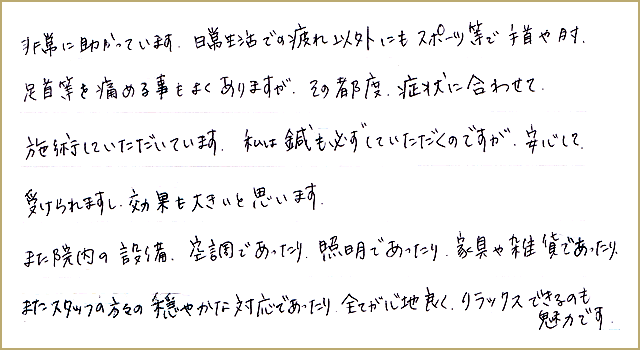 非常に助かっています。日常生活での疲れ以外にもスポーツ等で手首や肘、
足首等を痛める事もよくありますが、その都度、症状に合わせて、
施術していただいています。私は鍼も必ずしていただくのですが、安心して、
受けられますし、効果も大きいと思います。
また院内の設備、空調であったり、照明であったり、家具や雑貨であったり、
またスタッフの方々の穏やかな対応であったり、全てが心地良く、リラックスできるのも
魅力です。